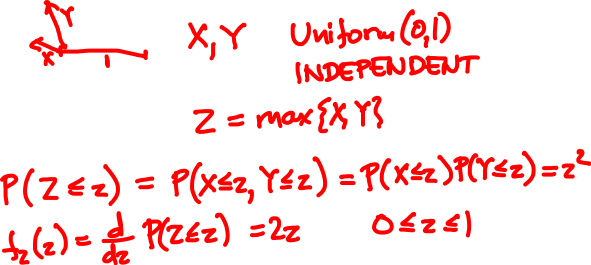 Y
X 1
X, Y Uniform (0,1)
INDEPENDENT
Z = max{X,Y}
P(Z≤z) = P(X≤z, Y≤z) = P(X≤z)P(Y≤z) = z²
f_Z(z) = d/dz P(Z≤z) = 2z 0≤z≤1